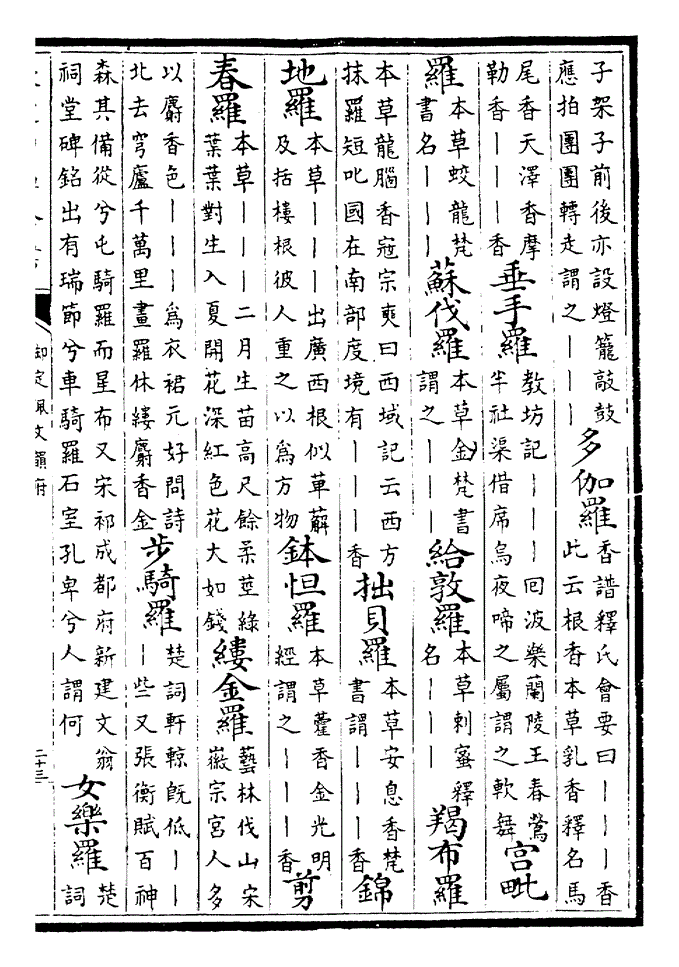 子架子前後亦設燈籠敲鼓應拍團團轉走謂之丨丨丨多伽羅香譜釋氏會要曰丨丨丨香此云根香本草乳香釋名馬
尾香天澤香摩勒香丨丨丨香垂手羅教坊記丨丨丨囘波樂蘭陵王春鶯半社渠借席烏夜啼之屬謂之軟舞宫毗
羅本草蛟龍梵書名丨丨丨蘇伐羅本草金梵書謂之丨丨丨給敦羅本草刺蜜釋名丨丨丨羯布羅
本草龍腦香冦宗奭曰西域記云西方抹羅短叱國在南部度境有丨丨丨香拙貝羅本草安息香梵書謂丨丨丨香錦
地羅本草丨丨丨出廣西根似萆薢及括樓根彼人重之以為方物鉢怛羅本草藿香金光明經謂之丨丨丨香剪
春羅本草丨丨丨二月生苗高尺餘柔莖綠葉葉對生入夏開花深紅色花大如錢縷金羅藝林伐山宋徽宗宮人多
以麝香色丨丨丨為衣裙元好問詩北去穹廬千萬里畫羅休縷麝香金步騎羅楚詞軒輬旣低丨丨丨些又張衡賦百神
森其備從兮屯騎羅而星布又宋祁成都府新建文翁祠堂碑銘出有瑞節兮車騎羅石室孔卑兮人謂何女樂羅楚詞
御定佩文韻府
二十三